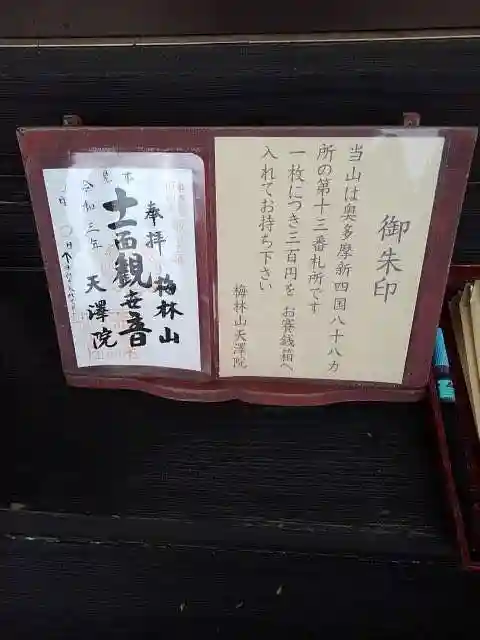 御朱印
当山は奥多摩新四国八十八カ
所の第十三番札所です
一枚につき三百円を お賽銭箱へ
入れてお持ち下さい
梅林山天澤院
見本
奉拝 梅林山
十一面観世音
令和三年 天澤院